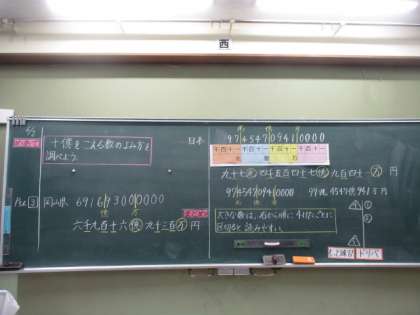 西
十億をこえる数のよみ方を
調べよう。
P12 3 岡山県 691693000000
億 万
六千九百十六億九千三百万円
日本 97454709410000
千百十一 千百十一 千百十一 千百十一
兆 億 万
九十七兆四千五百四十七億九百四十一万円
97454709410000 97兆4547億941万円
兆 億 万
大きな数は、右から順に4けたごとに
区切ると読みやすい。
1
2
ドリル